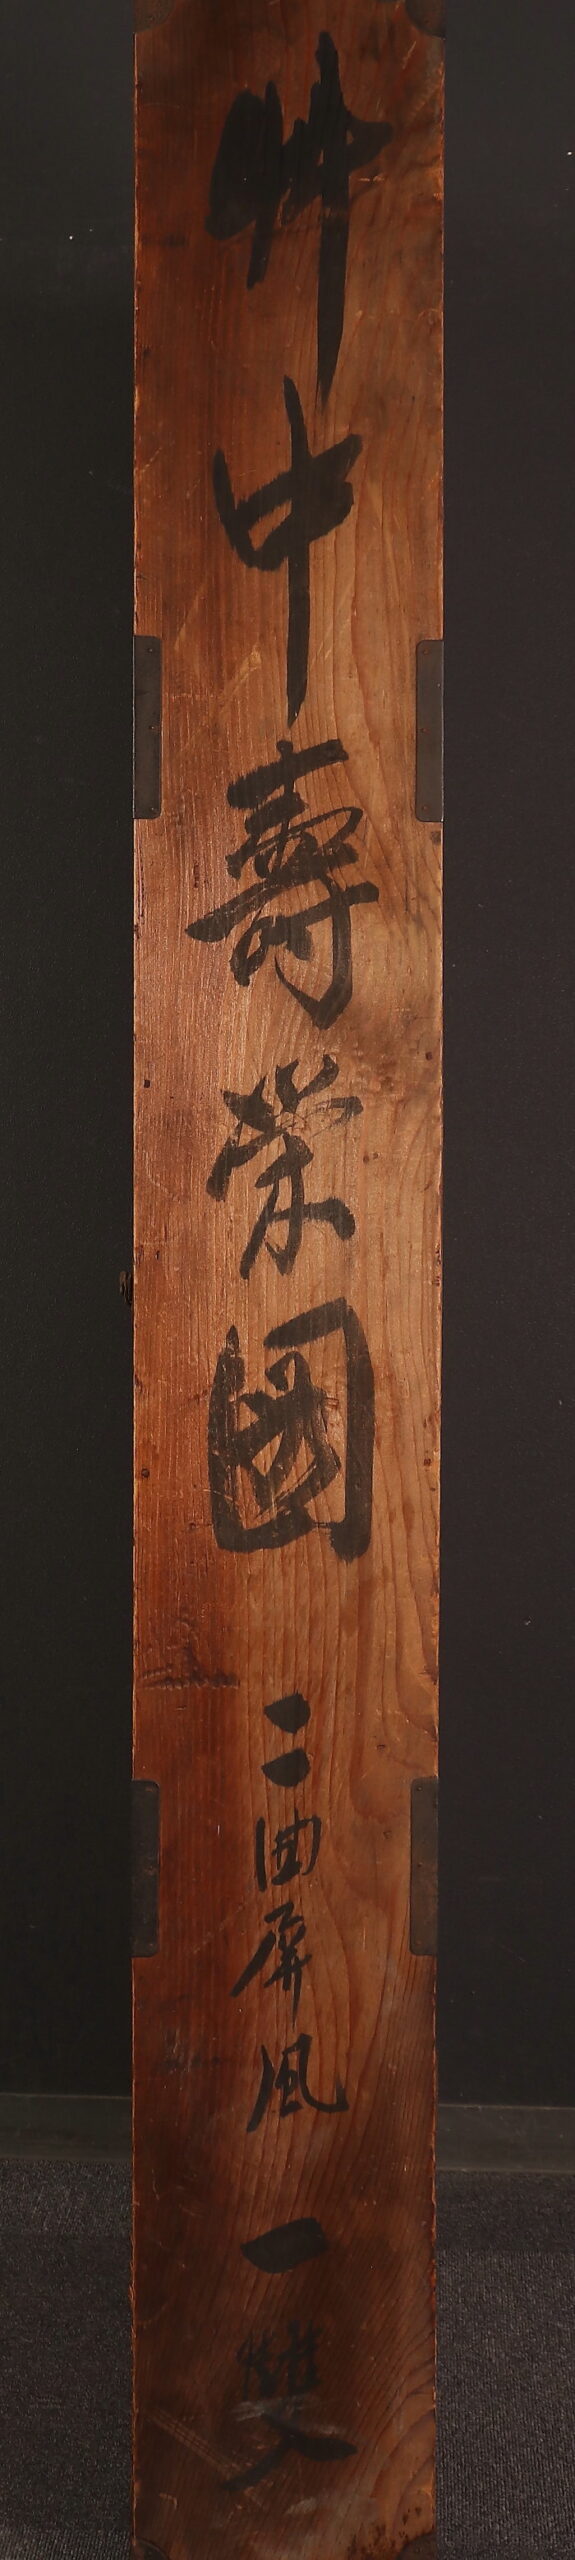 艸中壽榮圖 二曲屏風 一雙